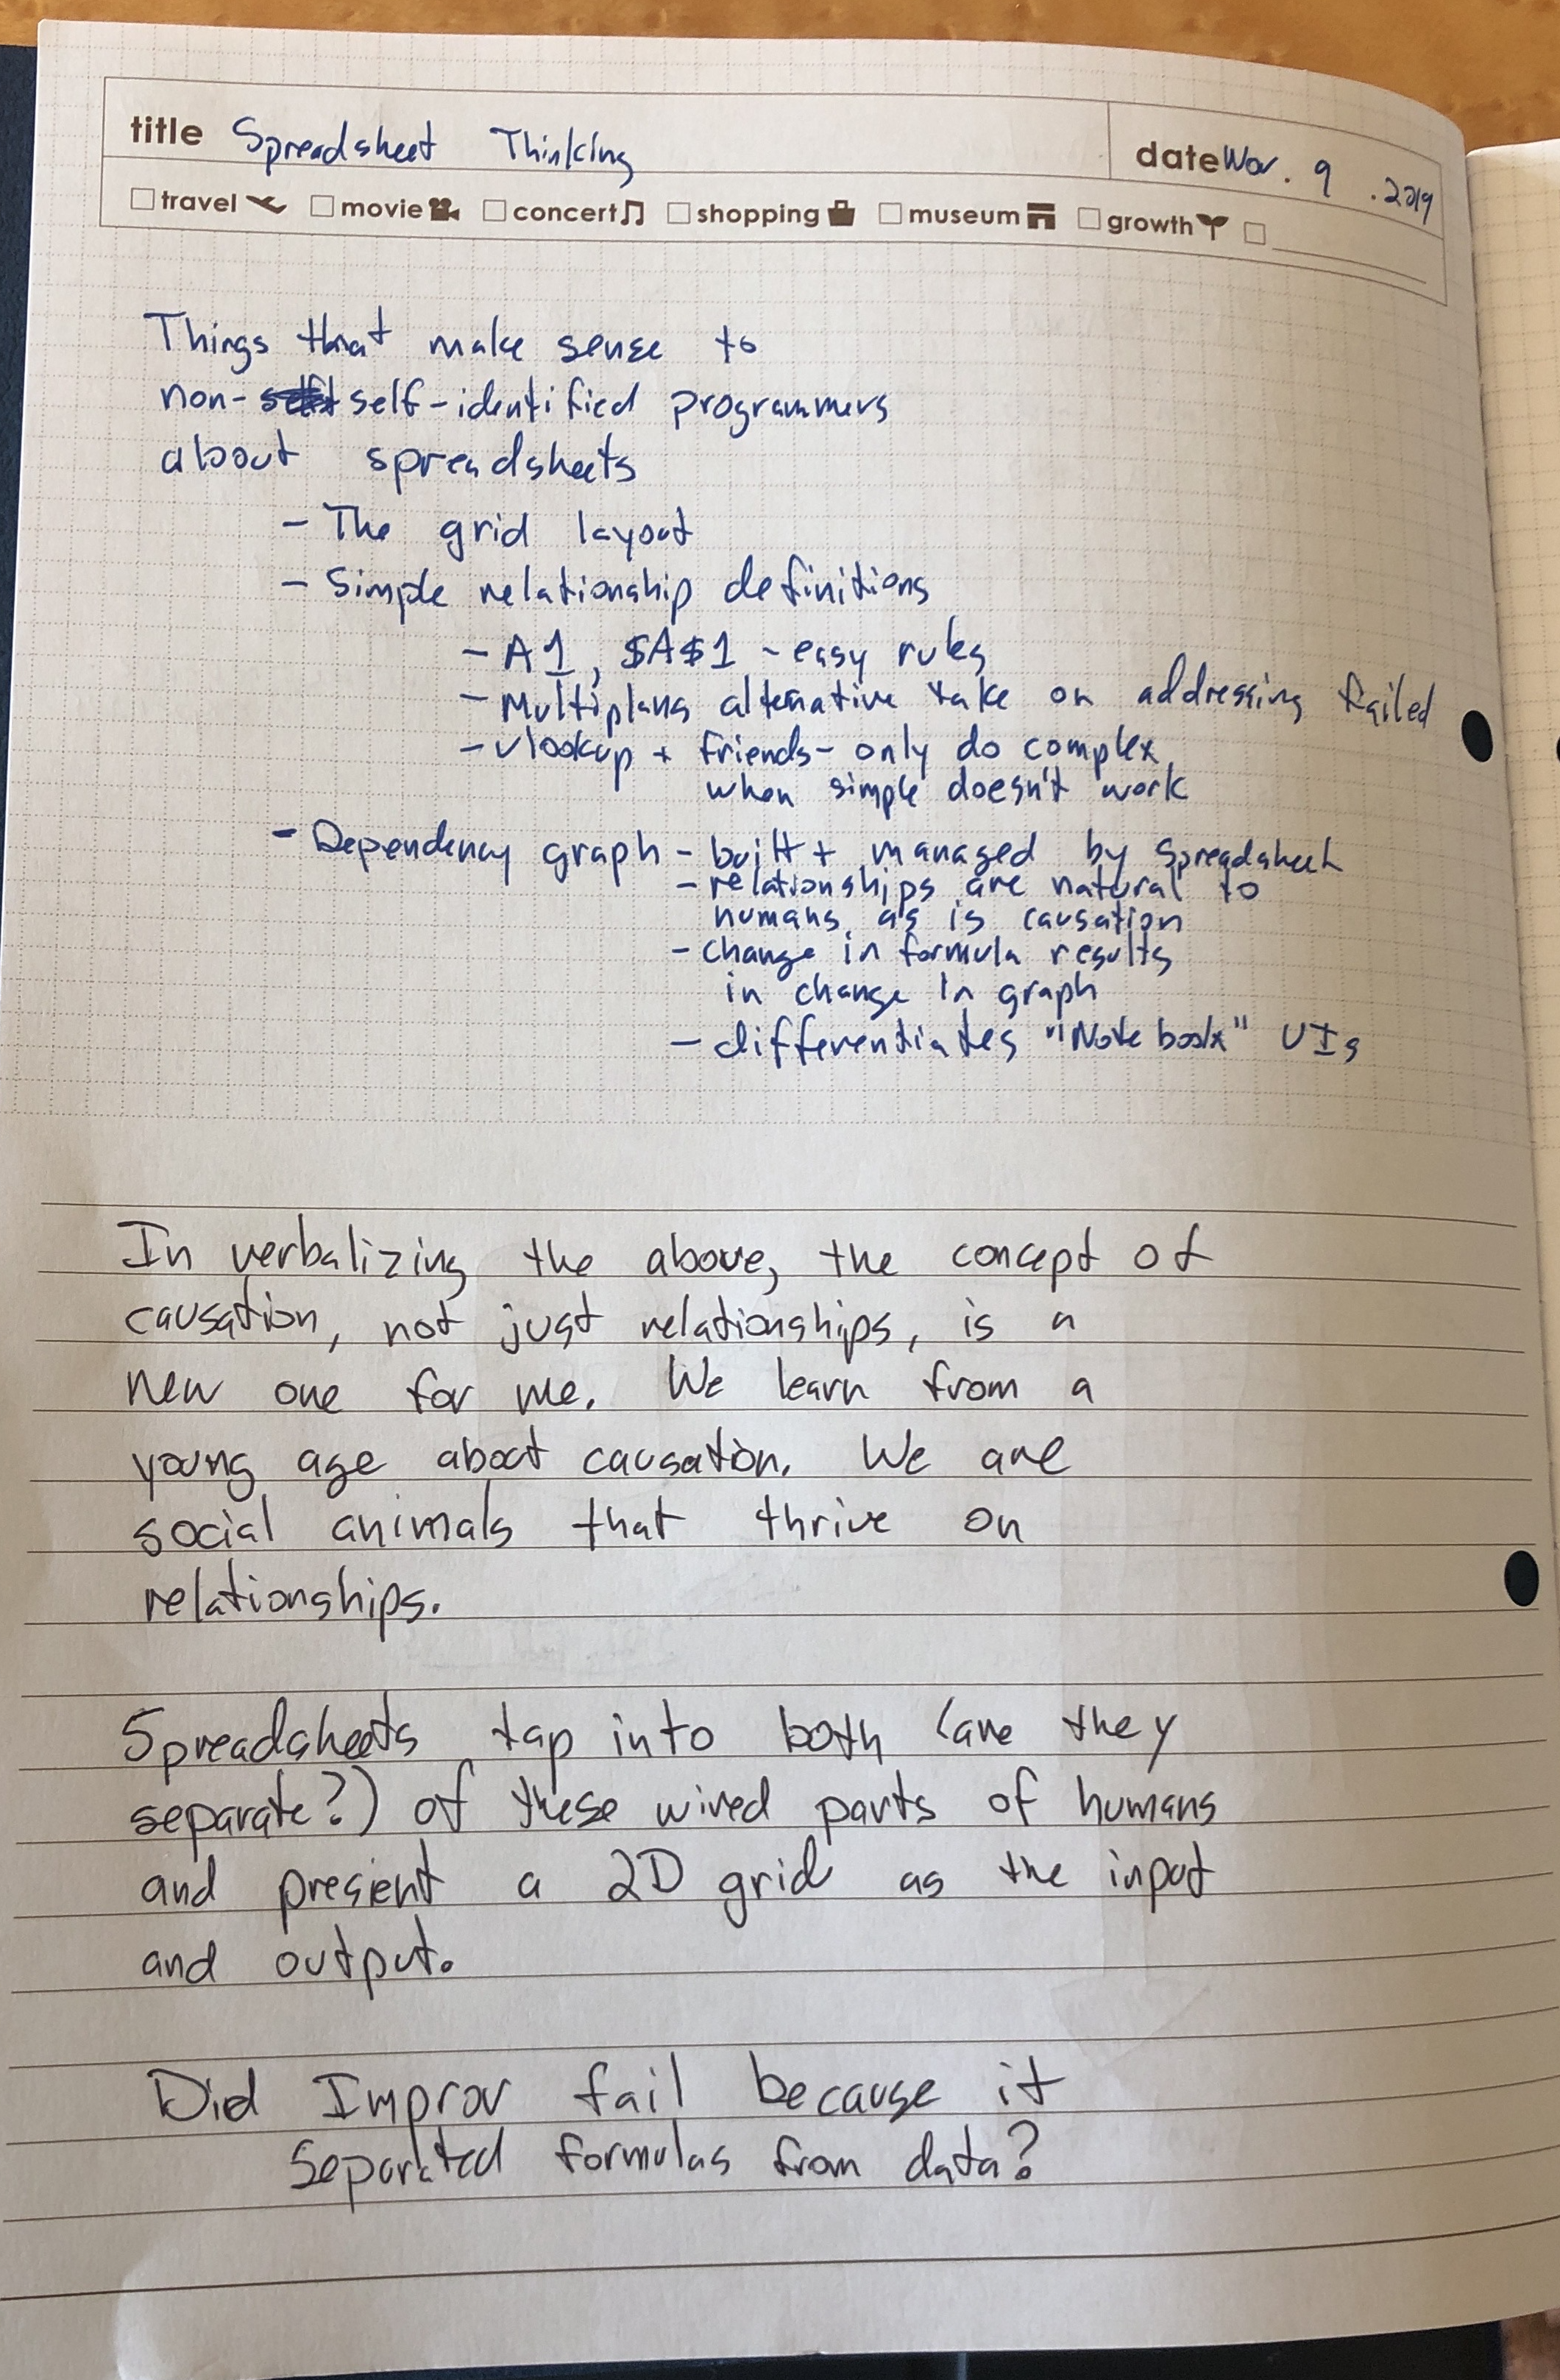 title Spreadsheet Thinking
date Nov. 9 .2019
travel movie concert shopping museum growth
Things that make sense to
non- self-identified programmers
about spreadsheets
- The grid layout
- Simple relationship definitions
- A1, $A$1 - easy rules
- Multiplans alternative take on addressing failed
- vlookup + friends - only do complex
when simple doesn't work
- Dependency graph - built + managed by spreadsheet
- relationships are natural to
humans, as is causation
- change in formula results
in change in graph
- differentiates "Notebook" UIs
In verbalizing the above, the concept of
causation, not just relationships, is a
new one for me. We learn from a
young age about causation. We are
social animals that thrive on
relationships.
Spreadsheets tap into both (are they
separate?) of these wired parts of humans
and present a 2D grid as the input
and output.
Did Improv fail because it
separated formulas from data?